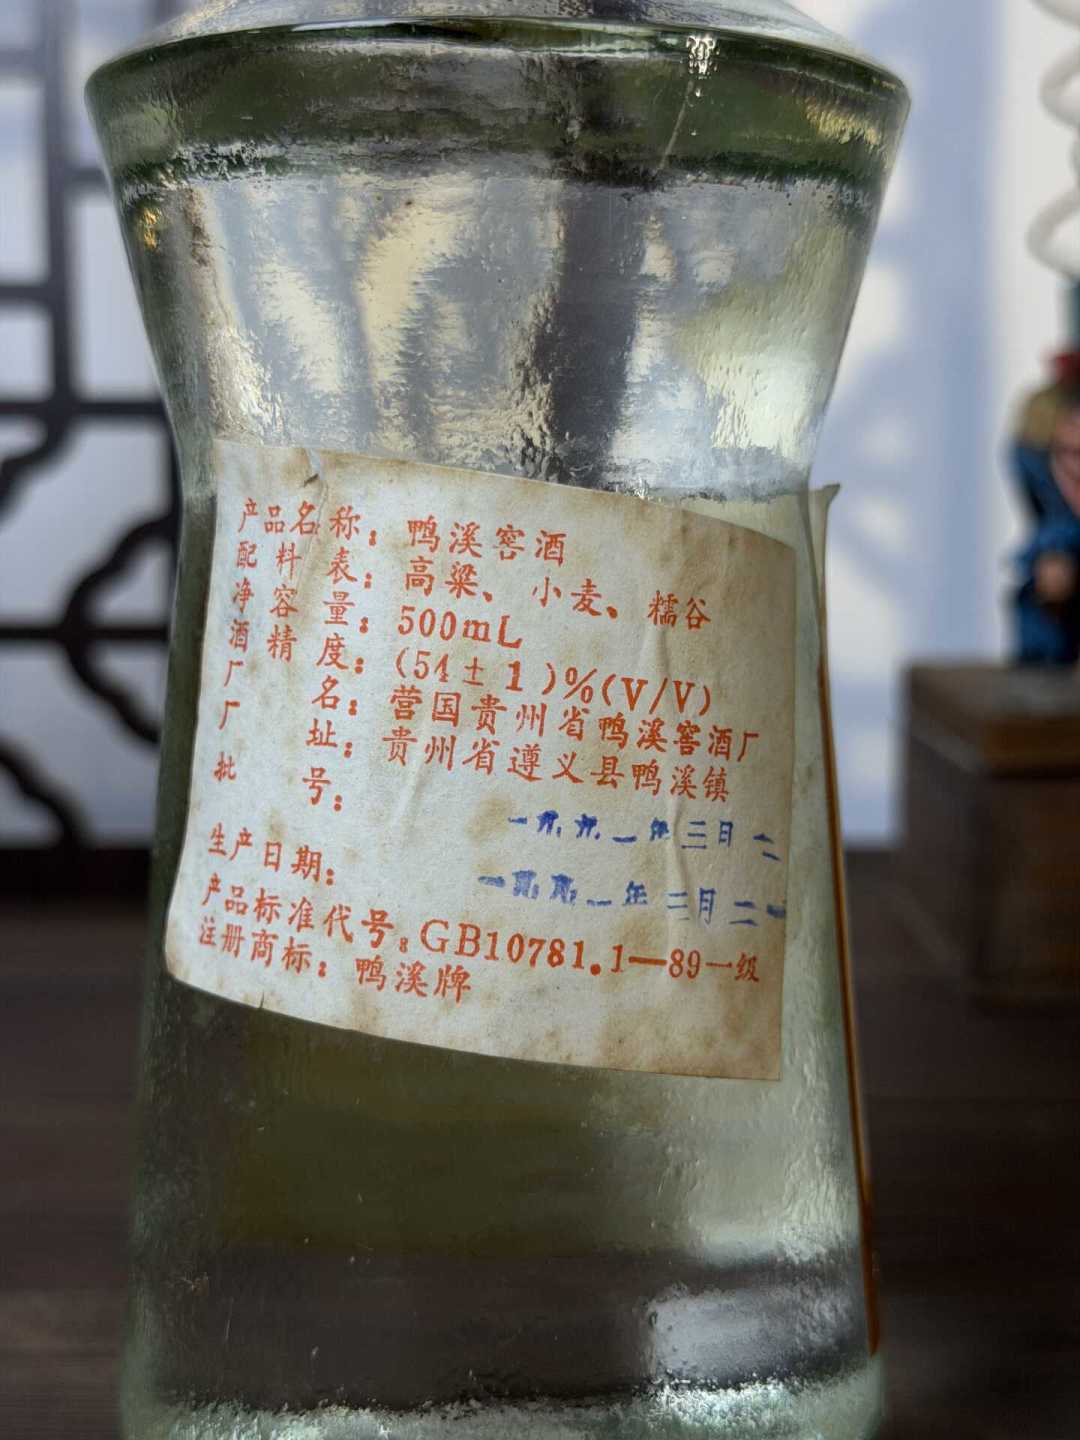 产品名称：鸭溪窖酒
配料表：高粱、小麦、糯谷
净容量：500mL
酒精度：(54±1)%(V/V)
厂名：营国贵州省鸭溪窖酒厂
厂址：贵州省遵义县鸭溪镇
批号：
一九九一年三日二
生产日期：
一九九一年二月二一
产品标准代号：GB10781.1—89一级
注册商标：鸭溪牌